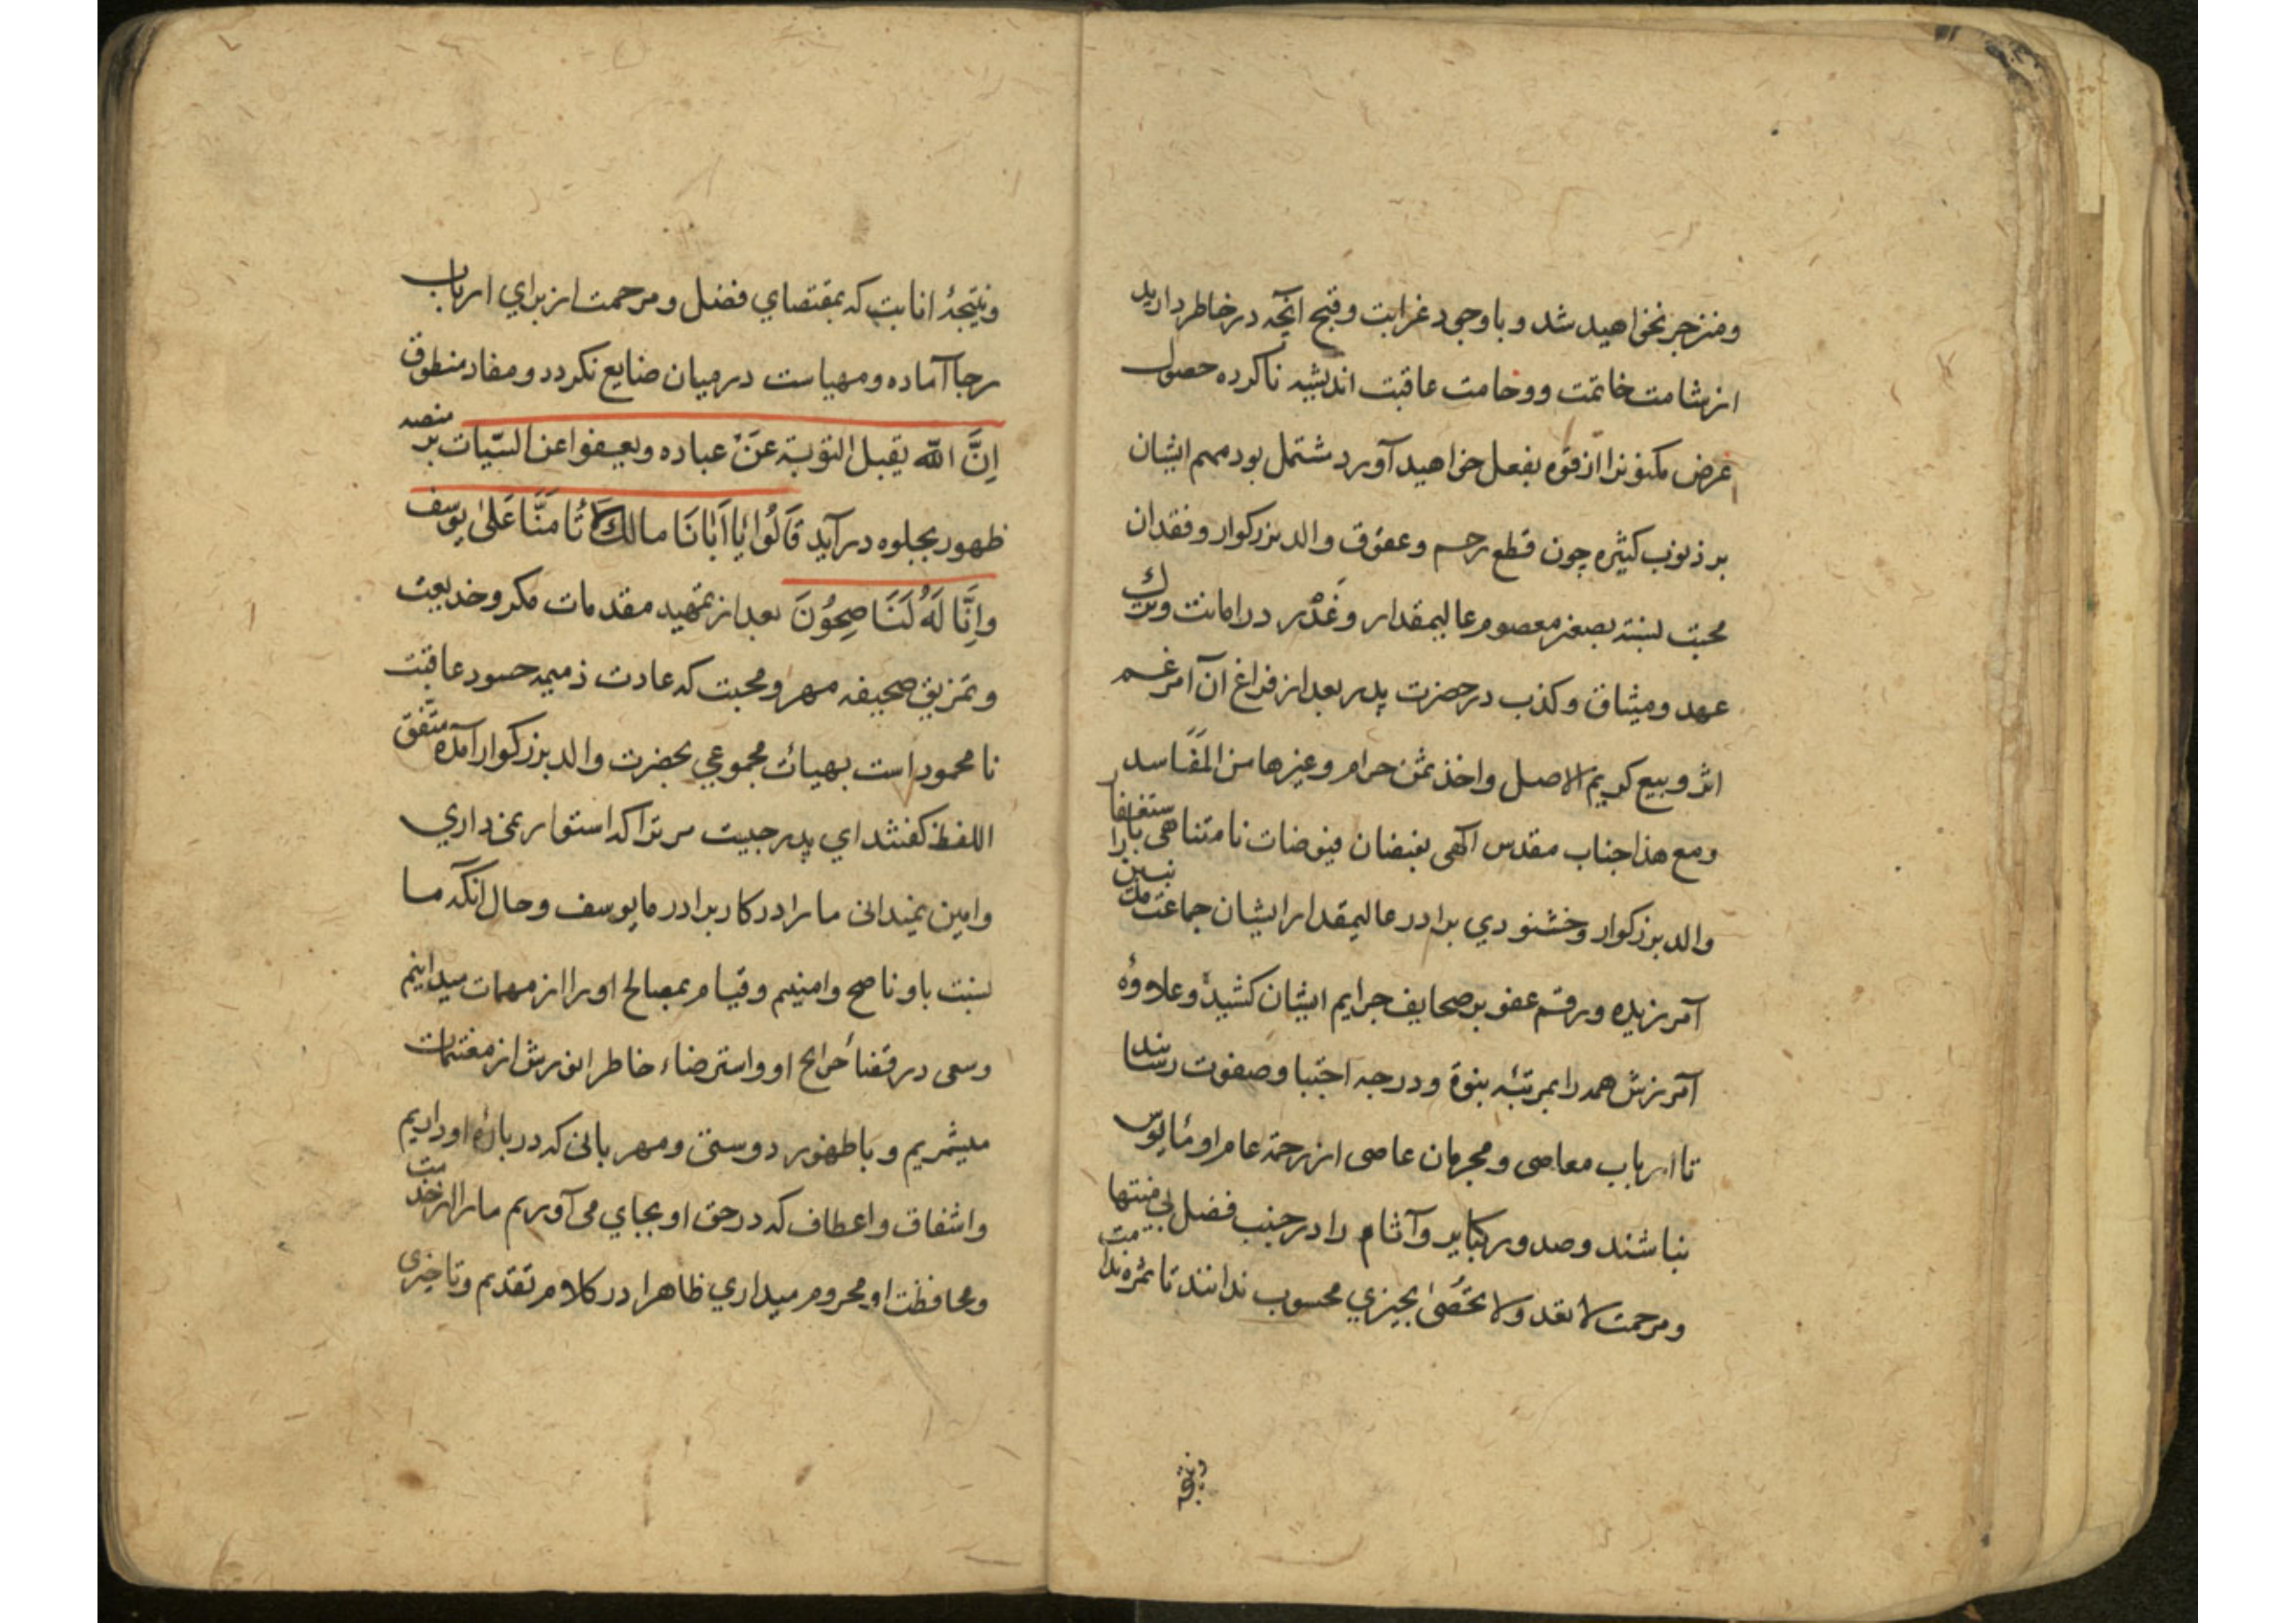 ومنزجر نخواهید شد و با وجود غرابت وقبح آنچه در خاطر دارید
از شامت خاتمت ووخامت عاقبت اندیشه ناکرده حصول
غرض مکنونرا از قوه بفعل خواهید آورد مشتمل بود مهم ایشان
بر ذنوب کثیره چون قطع رحم و عقوق والد بزرکوار وفقدان
محبت نسبت بصغیر معصوم عالیمقدار وغدر در امانت وترك
عهد ومیثاق وکذب در حضرت پدر بعد از فراغ آن امر غم
اثر و بیع کریم الاصل واخذ ثمن حرام وغیرها من المفاسد
ومع هذا جناب مقدس الهی بفیضان فیوضات نامتناهی باستغفار
والد بزرکوار وخشنودي برادر عالیمقدار ایشان جماعت مذنبین را
آمرزیده ورقم عفو بر صحایف جرایم ایشان کشیده وعلاوۀ
آمرزش همه را بمرتبۀ نبوة ودرجه اجتبا وصفوت رسانید
تا ارباب معاصی ومجرمان عاصی از رحمة عام او مأیوس
نباشند وصدور کبایر وآثام را در جنب فضل بی منتها
ومرحمت لا تعد ولا تحصی بچیزي محسوب ندانند تا ثمره ندامت
ونتیجۀ
ونتیجۀ انابت که بمقتضاي فضل ومرحمت از براي ارباب
رجا آماده ومهیاست در میان ضایع نکردد ومفاد منطوق
اِنَّ الله یقبل التوبة عَنْ عباده ویعفوا عن السّیات بر منصه
ظهور بجلوه در آید قَالُوا یَا اَبَانَا مالك لَا تَأْمَنَّا عَلیٰ یوسف
وَاِنَّا لَهُ لَنَاصِحُونَ بعد از تمهید مقدمات مکر وخدیعت
وتمزیق صحیفه مهر ومحبت که عادت ذمیمه حسود عاقبت
نامحمود است بهیأت مجموعي بحضرت والد بزرکوار آمده متّفق
اللفظ کفتند اي پدر چیست مر ترا که استوار نمی داري
وامین نمیدانی مارا در کار برادر ما یوسف وحال آنکه ما
نسبت باو ناصح وامینیم وقیام بمصالح اورا از مهمات میدانیم
وسعی در قضاء حوایج او واسترضاء خاطر انورش از مغتنمات
میشمریم و با ظهور دوستی ومهربانی که در بارۀ او داریم
واشفاق واعطاف که در حق او بجاي می آوریم مارا از خدمت
ومحافظت او محروم میداري ظاهرا در کلام تقدیم وتاخیری